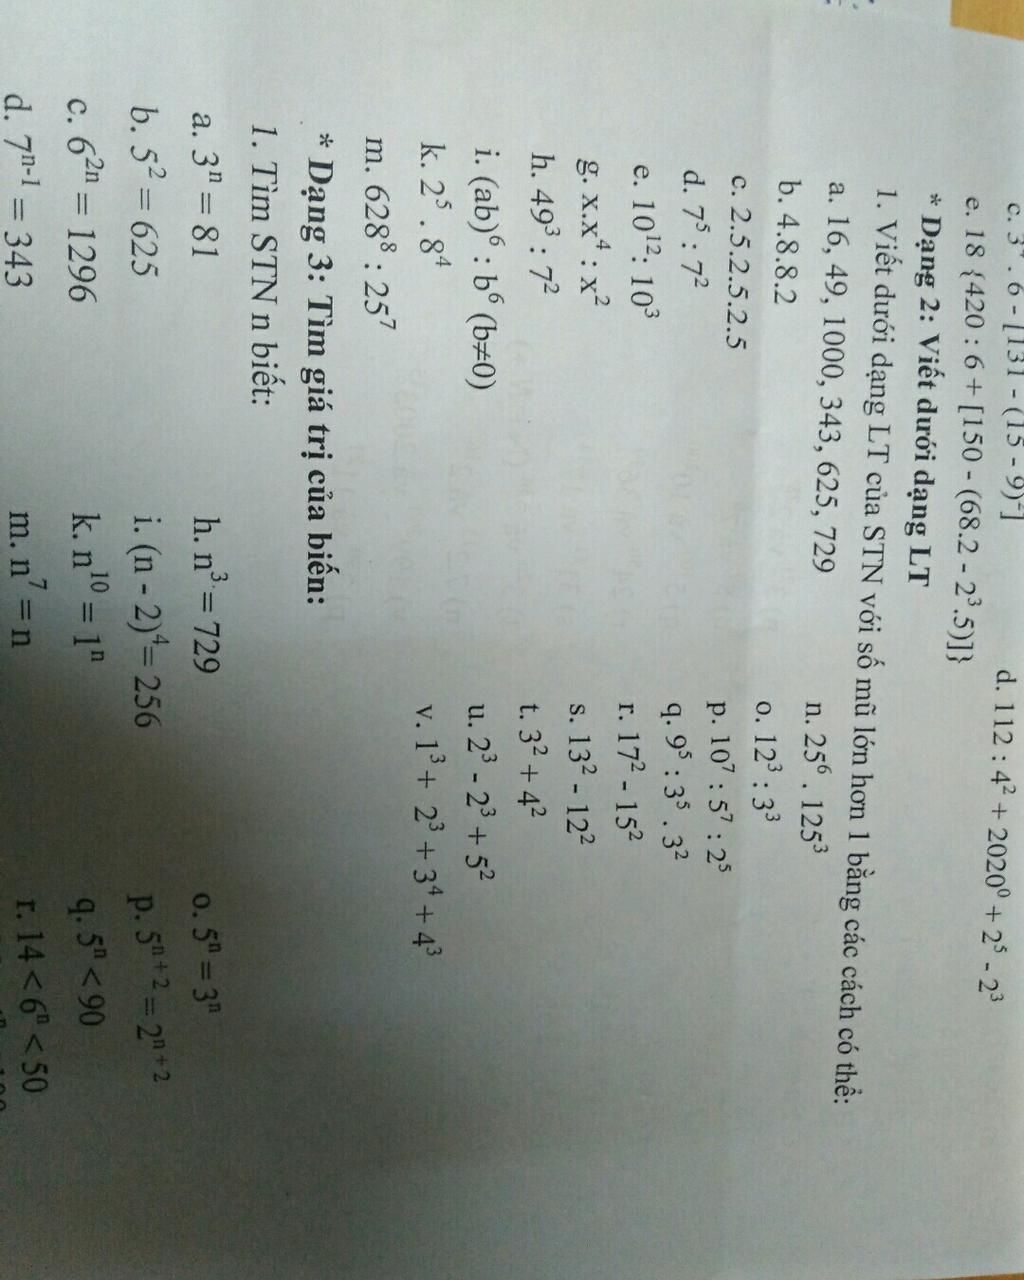 c. 3⁴ . 6 - [131 - (15 - 9)²]
d. 112 : 4² + 2020⁰ + 2⁵ - 2³
e. 18 {420 : 6 + [150 - (68.2 - 2³.5)]}
* Dạng 2: Viết dưới dạng LT
1. Viết dưới dạng LT của STN với số mũ lớn hơn 1 bằng các cách có thể:
a. 16, 49, 1000, 343, 625, 729
b. 4.8.8.2
c. 2.5.2.5.2.5
d. 7⁵ : 7²
e. 10¹² : 10³
g. x.x⁴ : x²
h. 49³ : 7²
i. (ab)⁶ : b⁶ (b≠0)
k. 2⁵ . 8⁴
m. 628⁸ : 25⁷
n. 25⁶ . 125³
o. 12³ : 3³
p. 10⁷ : 5⁷ : 2⁵
q. 9⁵ : 3⁵ . 3²
r. 17² - 15²
s. 13² - 12²
t. 3² + 4²
u. 2³ - 2³ + 5²
v. 1³ + 2³ + 3⁴ + 4³
* Dạng 3: Tìm giá trị của biến:
1. Tìm STN n biết:
a. 3ⁿ = 81
b. 5² = 625
c. 6²ⁿ = 1296
d. 7ⁿ⁻¹ = 343
h. n³ = 729
i. (n - 2)⁴ = 256
k. n¹⁰ = 1ⁿ
m. n⁷ = n
o. 5ⁿ = 3ⁿ
p. 5ⁿ⁺² = 2ⁿ⁺²
q. 5ⁿ < 90
r. 14 < 6ⁿ < 50